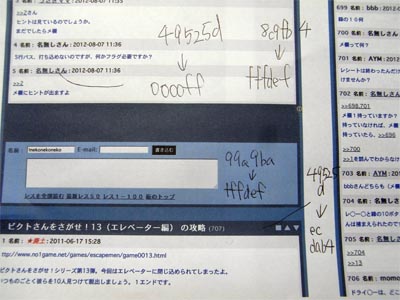 >>2さん
ヒントは見ているのでしょうか。
まだでしたらメ欄
4 名前：名無しさん：2012-08-07 11:36
5行パス、打ち込めないのですが、何かフラグ必要ですか？
5 名前：名無しさん：2012-08-07 11:36
>>2
メ欄にヒントが出ますよ
49525d
↓
0000ff
8c9fb4
↓
fffdef
名前：
nekonekoneko
E-mail:
書き込む
99a9ba
↓
fffdef
レスを全部読む 最新レス50 レス1-100 板のトップ
ピクトさんをさがせ！13（エレベーター編） の攻略 (707)
■▲▼
1 名前：★護士：2011-06-17 15:28
http://www.no1game.net/games/escapemen/game0013.html
ピクトさんをさがせ！シリーズ第13弾。今回はエレベーターに閉じ込められてしまったよ。
いつものごとく彼らを10人見つけて脱出しましょう。1エンドです。
4952
5
d
↓
ec
dab4
699 名前：bbb：2012-
緑の10何
700 名前：AYM：2012-
レシートは終わったんだけ
けませんか。
701 名前：名無しさん
>>698,701
メ欄1持っていますか？
持っていなければ、メ欄
ていたら、>>696
702 名前：名無しさん
>>1を読んでわからなけ
703 名前：AYM：2012
bbbさんどちら（メ欄）
704 名前：名無しさん
705 名前：名無しさん
>>704
>>13
706 名前：momo